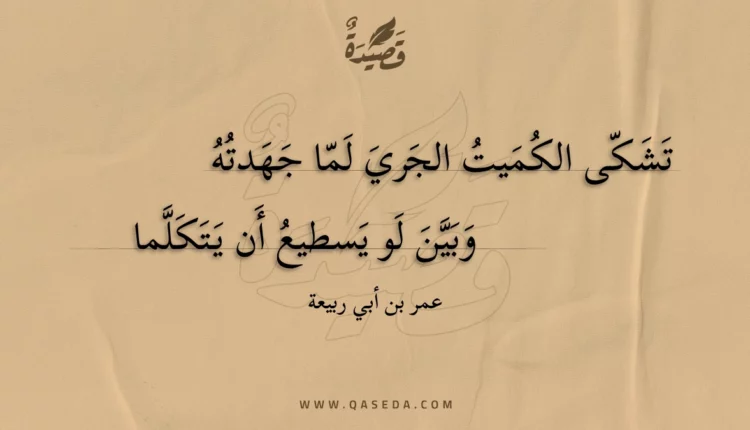 قَصِيدَةٌ
تَشَكّى الكُمَيتُ الجَريَ لَمّا جَهَدتُهُ
وَبَيَّنَ لَو يَسطيعُ أَن يَتَكَلَّما
عمر بن أبي ربيعة
WWW.QASEDA.COM